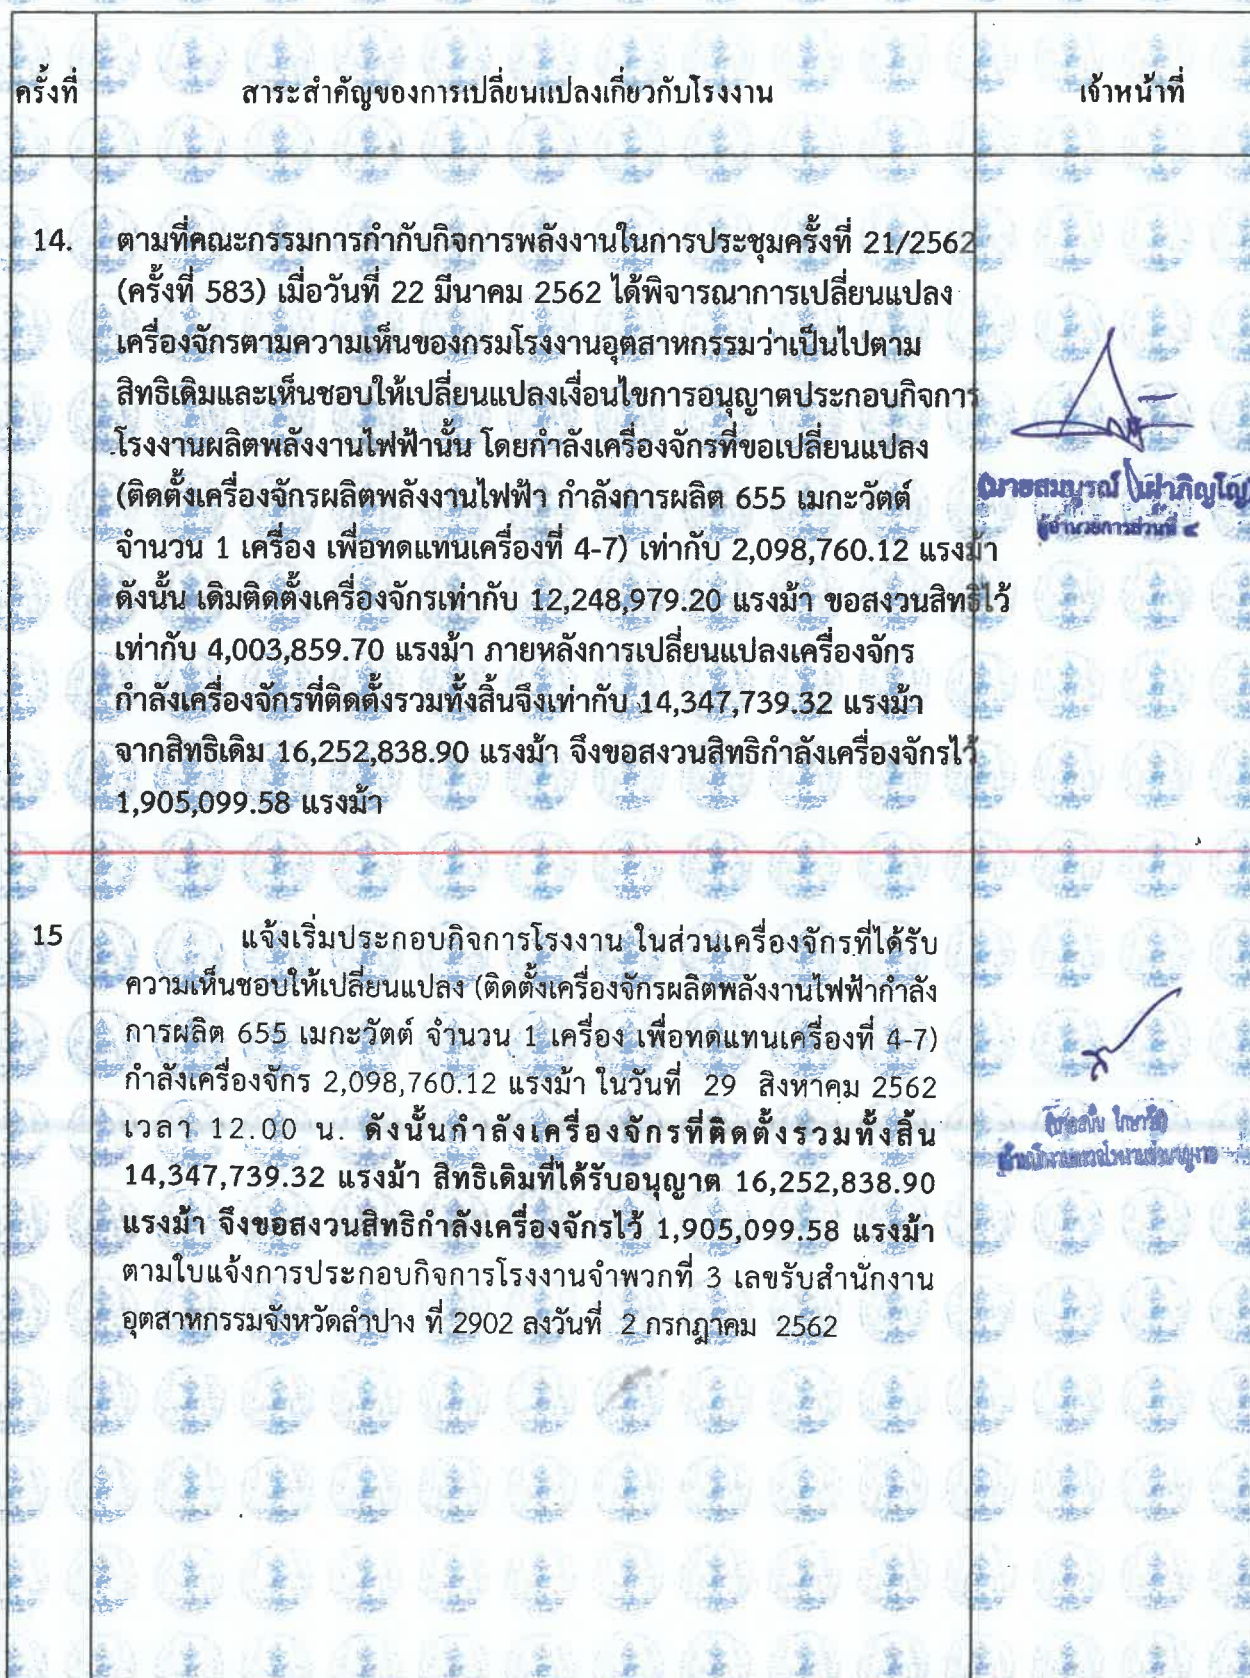 ครั้งที่ สาระสำคัญของการเปลี่ยนแปลงเกี่ยวกับโรงงาน เจ้าหน้าที่
14. ตามที่คณะกรรมการกำกับกิจการพลังงานในการประชุมครั้งที่ 21/2562
(ครั้งที่ 583) เมื่อวันที่ 22 มีนาคม 2562 ได้พิจารณาการเปลี่ยนแปลง
เครื่องจักรตามความเห็นของกรมโรงงานอุตสาหกรรมว่าเป็นไปตาม
สิทธิเดิมและเห็นชอบให้เปลี่ยนแปลงเงื่อนไขการอนุญาตประกอบกิจการ
โรงงานผลิตพลังงานไฟฟ้านั้น โดยกำลังเครื่องจักรที่ขอเปลี่ยนแปลง
(ติดตั้งเครื่องจักรผลิตพลังงานไฟฟ้า กำลังการผลิต 655 เมกะวัตต์
จำนวน 1 เครื่อง เพื่อทดแทนเครื่องที่ 4-7) เท่ากับ 2,098,760.12 แรงม้า
ดังนั้น เดิมติดตั้งเครื่องจักรเท่ากับ 12,248,979.20 แรงม้า ขอสงวนสิทธิไว้
เท่ากับ 4,003,859.70 แรงม้า ภายหลังการเปลี่ยนแปลงเครื่องจักร
กำลังเครื่องจักรที่ติดตั้งรวมทั้งสิ้นจึงเท่ากับ 14,347,739.32 แรงม้า
จากสิทธิเดิม 16,252,838.90 แรงม้า จึงขอสงวนสิทธิกำลังเครื่องจักรไว้
1,905,099.58 แรงม้า
(นายสมบูรณ์
ผู้อำนวยการส่วนที่ ๔
15 แจ้งเริ่มประกอบกิจการโรงงาน ในส่วนเครื่องจักรที่ได้รับ
ความเห็นชอบให้เปลี่ยนแปลง (ติดตั้งเครื่องจักรผลิตพลังงานไฟฟ้ากำลัง
การผลิต 655 เมกะวัตต์ จำนวน 1 เครื่อง เพื่อทดแทนเครื่องที่ 4-7)
กำลังเครื่องจักร 2,098,760.12 แรงม้า ในวันที่ 29 สิงหาคม 2562
เวลา 12.00 น. ดังนั้นกำลังเครื่องจักรที่ติดตั้งรวมทั้งสิ้น
14,347,739.32 แรงม้า สิทธิเดิมที่ได้รับอนุญาต 16,252,838.90
แรงม้า จึงขอสงวนสิทธิกำลังเครื่องจักรไว้ 1,905,099.58 แรงม้า
ตามใบแจ้งการประกอบกิจการโรงงานจำพวกที่ 3 เลขรับสำนักงาน
อุตสาหกรรมจังหวัดลำปาง ที่ 2902 ลงวันที่ 2 กรกฎาคม 2562